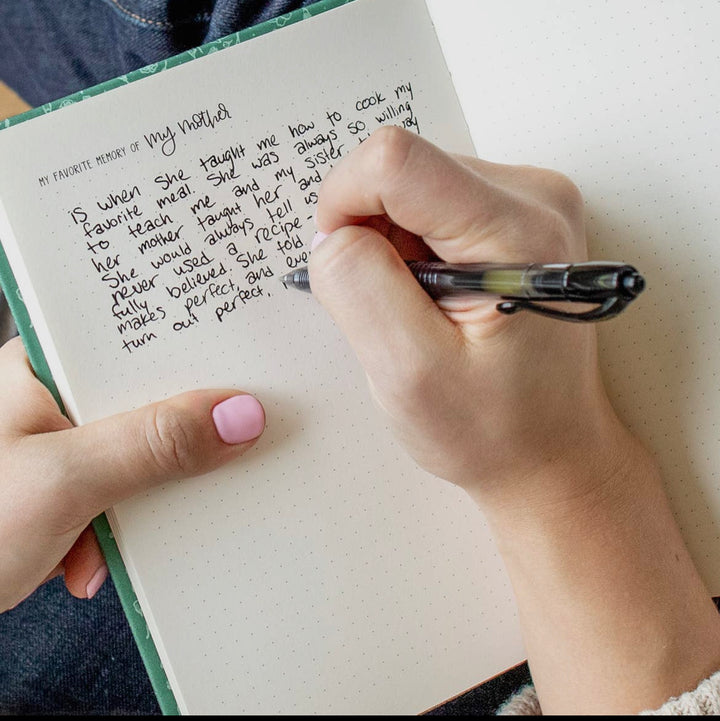 MY FAVORITE MEMORY OF my mother
is when she taught me how to cook my
favorite meal. She was always so willing
to teach me and my sister
her mother taught her and
She would always tell us
never used a recipe-
fully believed. She told
makes perfect, and
turn out perfect,